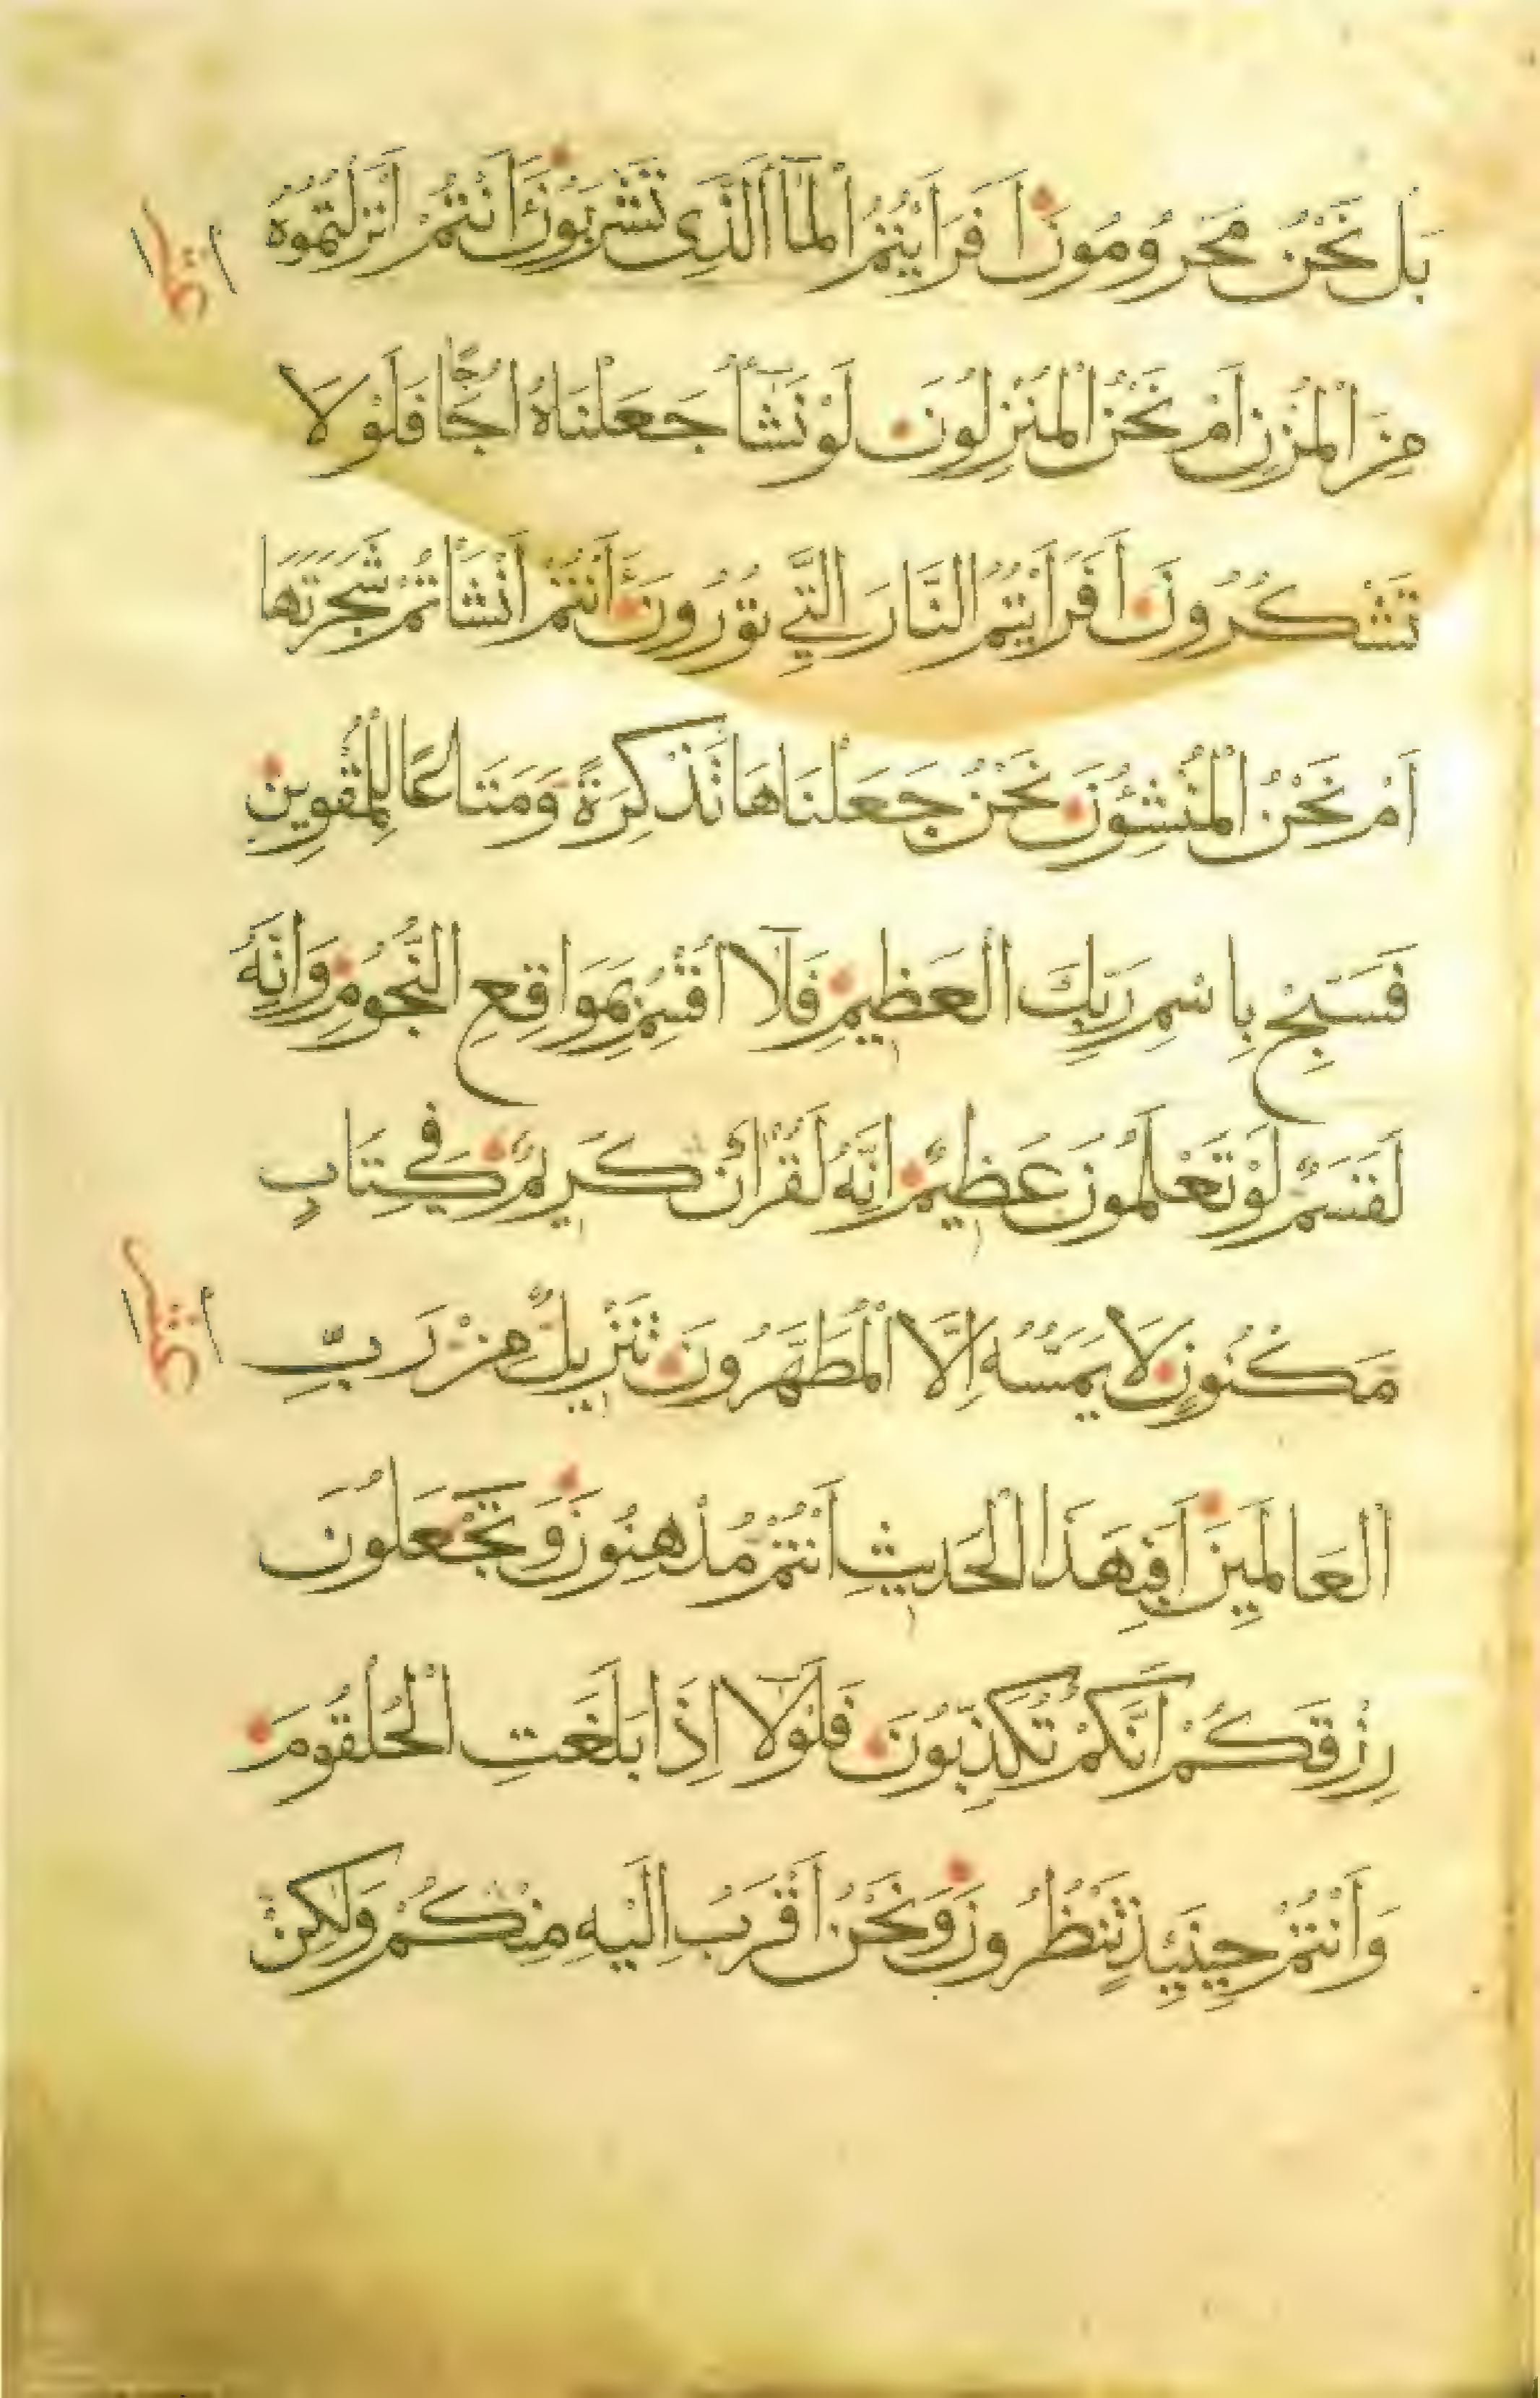 بَلْ نَحْنُ مَحْرُومُونَ اَفَرَاَيْتُمُ الْمَآءَ الَّذِى تَشْرَبُونَ ءَاَنْتُمْ اَنْزَلْتُمُوهُ
مِنَ الْمُزْنِ اَمْ نَحْنُ الْمُنْزِلُونَ لَوْ نَشَآءُ جَعَلْنَاهُ اُجَاجًا فَلَوْلَا
تَشْكُرُونَ اَفَرَاَيْتُمُ النَّارَ الَّتِي تُوْرُوْنَ ءَاَنْتُمْ اَنْشَاْتُمْ شَجَرَتَهَا
اَمْ نَحْنُ الْمُنْشِؤُنَ نَحْنُ جَعَلْنَاهَا تَذْكِرَةً وَمَتَاعًا لِلْمُقْوِينَ
فَسَبِّحْ بِاسْمِ رَبِّكَ الْعَظِيمِ فَلَآ اُقْسِمُ بِمَوَاقِعِ النُّجُومِ وَاِنَّهُ
لَقَسَمٌ لَوْ تَعْلَمُونَ عَظِيمٌ اِنَّهُ لَقُرْاٰنٌ كَرِيمٌ فِي كِتَابٍ
مَكْنُونٍ لَا يَمَسُّهُ اِلَّا الْمُطَهَّرُونَ تَنْزِيلٌ مِنْ رَبِّ
الْعَالَمِينَ اَفَبِهَذَا الْحَدِيثِ اَنْتُمْ مُدْهِنُونَ وَتَجْعَلُونَ
رِزْقَكُمْ اَنَّكُمْ تُكَذِّبُونَ فَلَوْلَآ اِذَا بَلَغَتِ الْحُلْقُومَ
وَاَنْتُمْ حِينَئِذٍ تَنْظُرُونَ وَنَحْنُ اَقْرَبُ اِلَيْهِ مِنْكُمْ وَلٰكِنْ